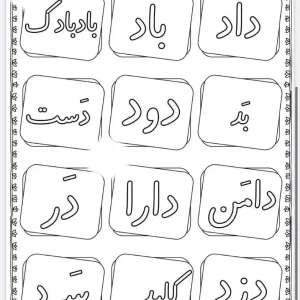 داد باد بادبادک
بَد دود دَست
دامَن دارا دَر
دزد کلید سَبد